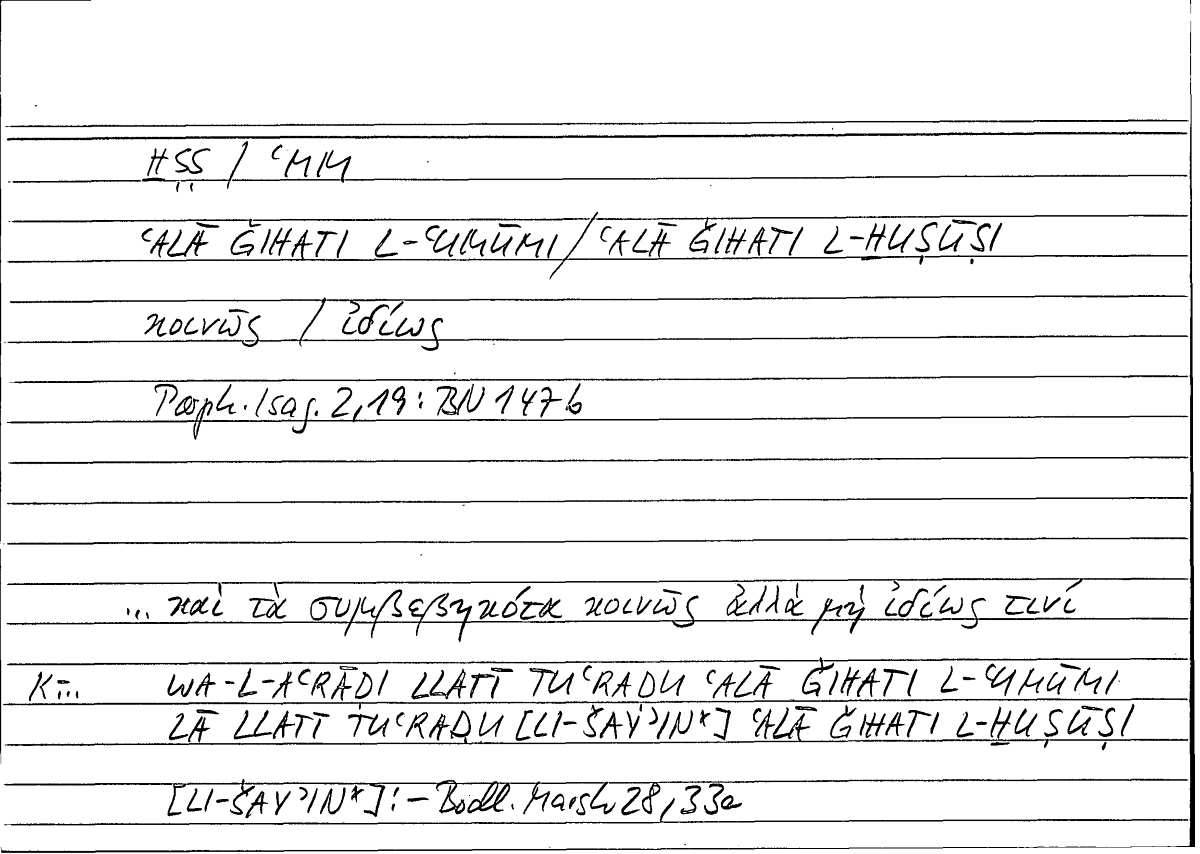 ḪṢṢ / ʿMM
ʿALĀ ǦIHATI L-ʿUMŪMI / ʿALĀ ǦIHATI L-ḪUṢŪṢI
κοινῶς / ἰδίως
Porph. Isag. 2,19: BN 147b
... καὶ τὰ συμβεβηκότα κοινῶς ἀλλὰ μὴ ἰδίως τινί
K... WA-L-AʿRĀḌI LLATĪ TUʿRAḌU ʿALĀ ǦIHATI L-ʿUMŪMI
LĀ LLATĪ TUʿRAḌU [LI-ŠAYʾIN*] ʿALĀ ǦIHATI L-ḪUṢŪṢI
[LI-ŠAYʾIN*]: – Bodl. Marsh 28, 33a